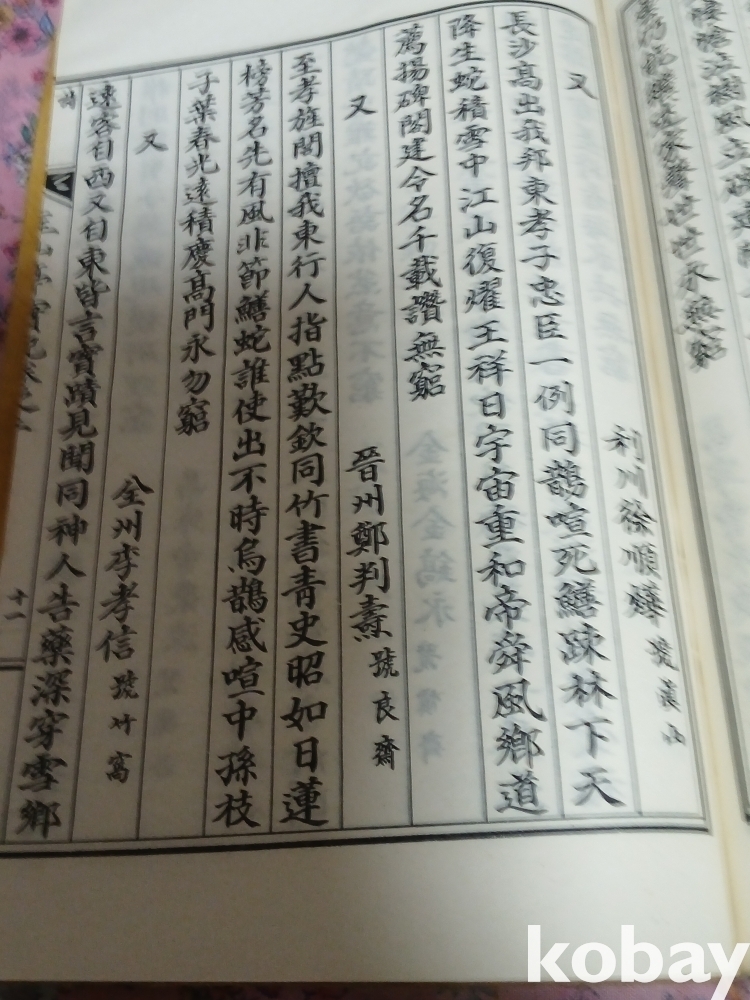 又
利川徐順
長沙高出我邦東孝子忠臣一例同鵲喧死鱔踈林下天
降生蛇積雪中江山復耀王祥日宇宙重和帝舜風鄕道
薦揚碑閣建令名千載讚無窮
又
晉州鄭判壽 號良齋
至孝旌閭擅我東行人指點歎欽同竹書靑史昭如日蓮
榜芳名先有風非節鱔蛇誰使出不時烏鵲感喧中孫枝
子葉春光遠積慶高門永勿窮
又
全州李孝信 號竹窩
遠客自西又自東皆言實蹟見聞同神人告藥深穿雪鄕
十一
kobay